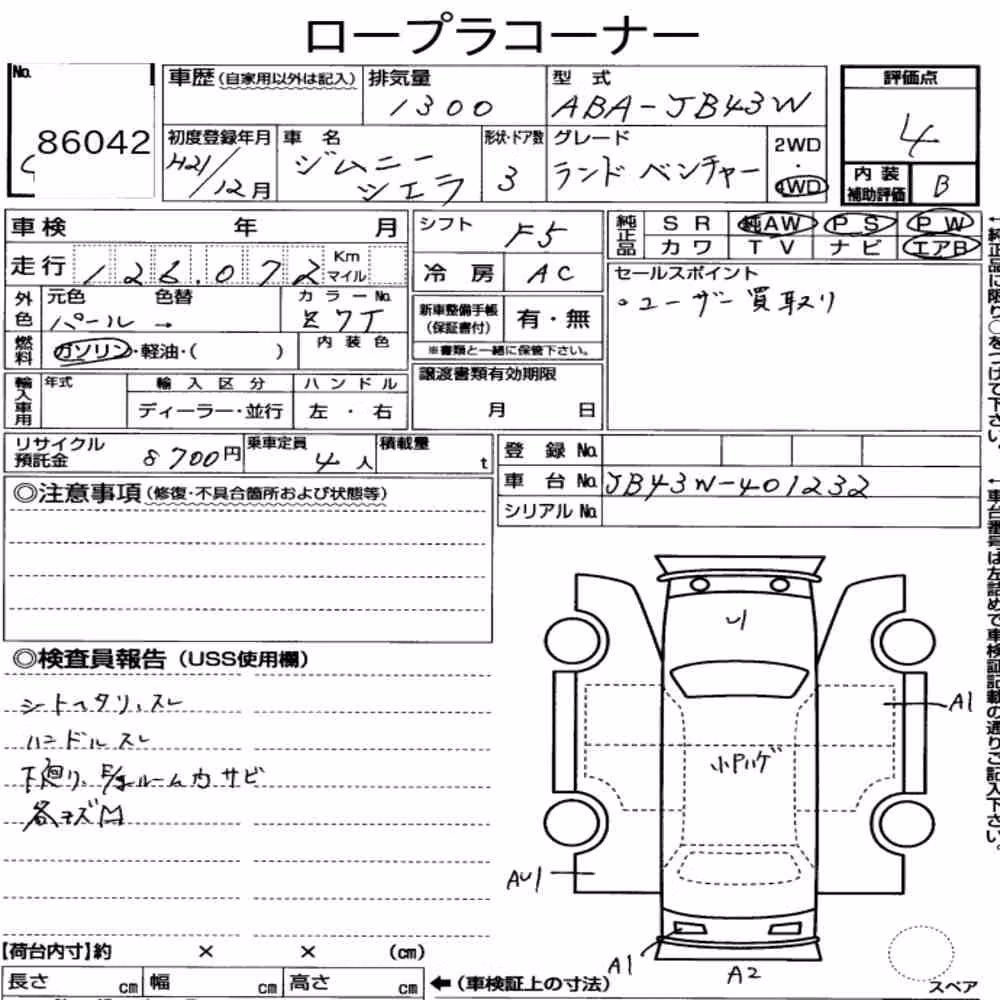 ロープラコーナー
No. 86042
車歴(自家用以外は記入)
排気量 1300
型式 ABA-JB43W
評価点 4
初度登録年月 H21/12月
車名 ジムニーシエラ
形状・ドア数 3
グレード ランドベンチャー
2WD・4WD
内装補助評価 B
車検 年 月
シフト F5
純正品 SR 純AW PS PW
カワ TV ナビ エアB
走行 126,072 Km マイル
冷房 AC
セールスポイント
○ユーザー買取り
外色 元色 色替
パール →
カラーNo. Z7T
新車整備手帳(保証書付) 有・無
※書類と一緒に保管下さい。
燃料 ガソリン・軽油・( )
内装色
輸入車用 年式 輸入区分 ハンドル
ディーラー・並行 左・右
譲渡書類有効期限
月 日
リサイクル預託金 8700円
乗車定員 4人
積載量 t
登録No.
車台No. JB43W-401232
シリアルNo.
◎注意事項(修復・不具合箇所および状態等)
◎検査員報告(USS使用欄)
シートヘタリ、スレ
ハンドルスレ
下廻り、E/gルーム内サビ
各キズ凹
U1
A1
小Pハゲ
AU1
A1
A2
【荷台内寸】約 × × (cm)
長さ cm 幅 cm 高さ cm
←(車検証上の寸法)
スペア
←純正品に限り○をつけて下さい。
←車台番号は左詰めで車検証記載の通りご記入下さい。